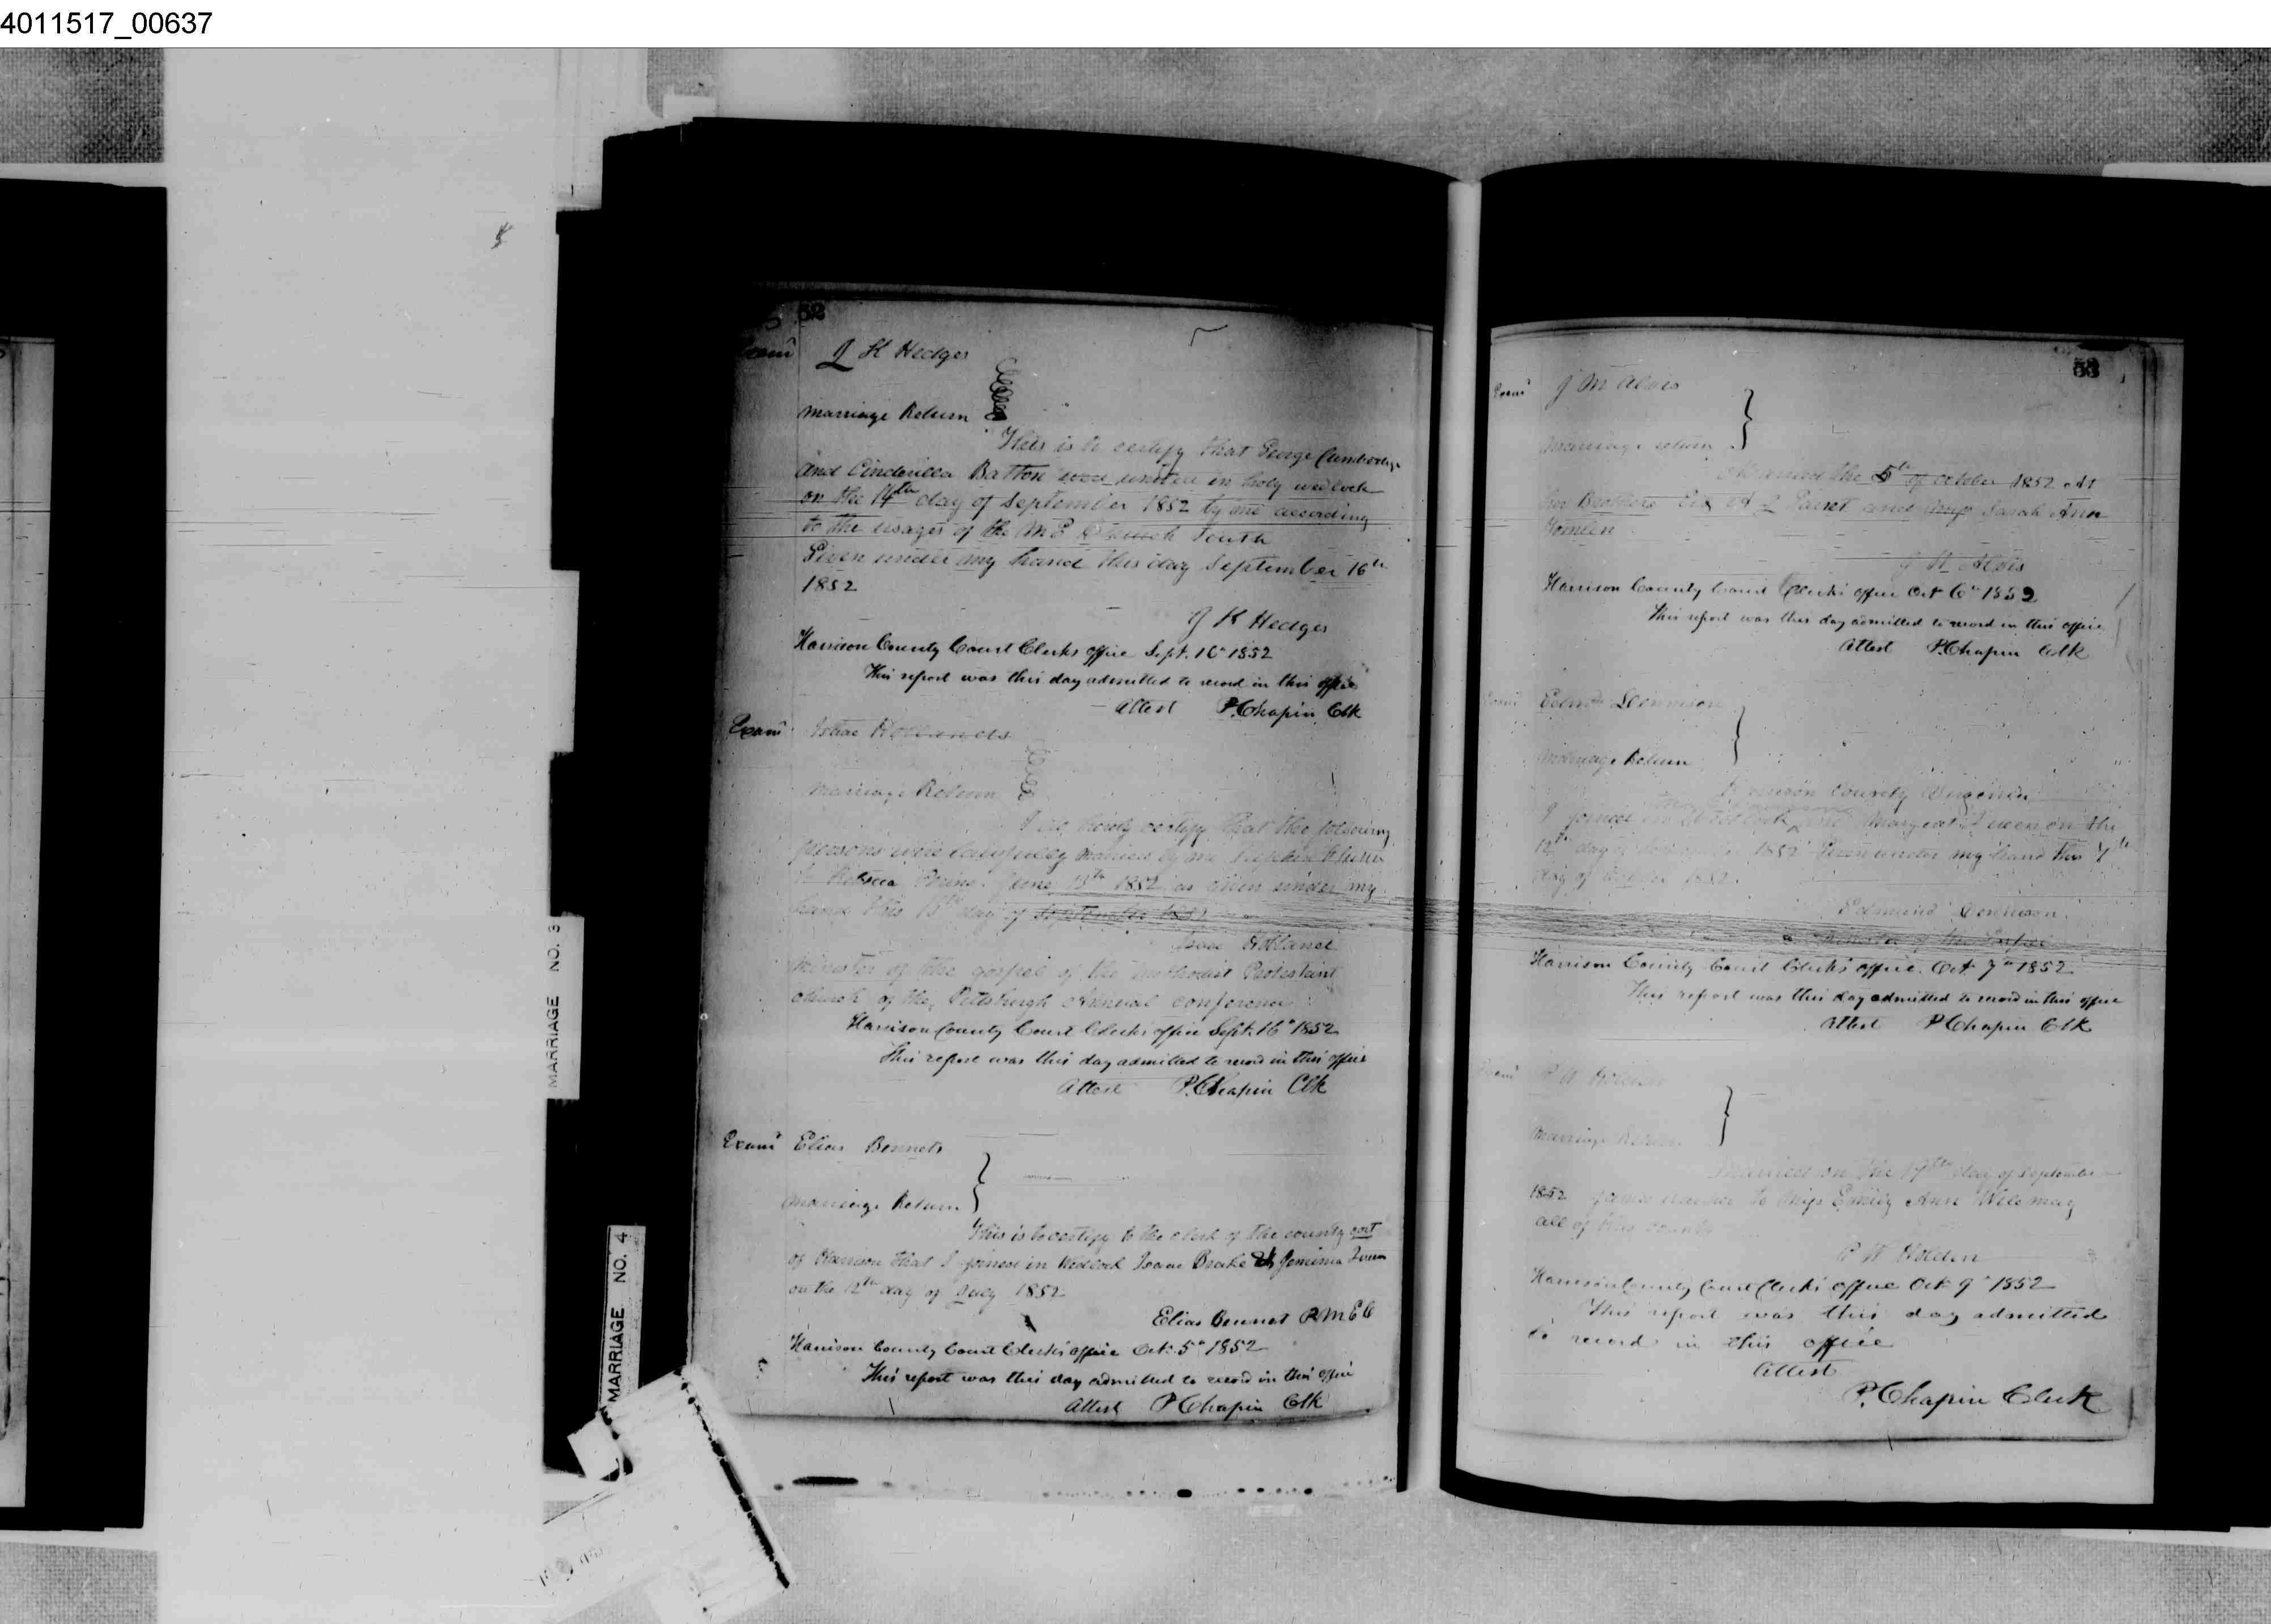 4011517_00637
MARRIAGE NO. 3
MARRIAGE NO. 4
52
J K Hedges
Marriage Return
This is to certify that George
and Cinderilla Batton were united in holy wedlock
on the 14th day of September 1852 by me according
to the usages of the M E Church South
Given under my hand this day September 16th
1852
J K Hedges
Harrison County Court Clerks office Sept. 16th 1852
This report was this day admitted to record in this office
Attest P. Chapin Clk
Exami
Marriage Return
I do hereby certify that the following
persons were lawfully married by me
to Rebecca June 13th 1852 as given under my
hand this 13th day of September 1852
Isaac Holland
Minister of the gospel of the Methodist Protestant
church of the Pittsburgh Annual conference
Harrison County Court Clerks office Sept. 16th 1852
This report was this day admitted to record in this office
Attest P. Chapin Clk
Exami Elias Bennets
Marriage Return
This is to certify to the clerk of the county cort
of Harrison that I joined in Wedlock Isaac Drake Jemima
on the 12th day of July 1852
Elias Bennet P M E C
Harrison County Court Clerks office Oct. 5th 1852
This report was this day admitted to record in this office
Attest P Chapin Clk
53
Exami J M Alvis
Marriage return
Married the 5th of October 1852 At
Brothers and Miss Sarah Ann
Harrison County Court Clerks office Oct 6th 1852
This report was this day admitted to record in this office
Attest P. Chapin Clk
Marriage Return
Harrison County Virginia
I joined in Wedlock on the
12th day of 1852 Given under my hand this 7th
day of October 1852.
Edmund Dennison
a Minister of the Gospel
Harrison County Court Clerks office. Oct. 7th 1852
This report was this day admitted to record in this office
Attest P Chapin Clk
Marriage Return
Married on the 19th day of September
1852 to Miss Emily Ann
all of this county
P W Holden
Harrison County Court Clerks office Oct 9th 1852
This report was this day admitted
to record in this office
Attest
P. Chapin Clerk